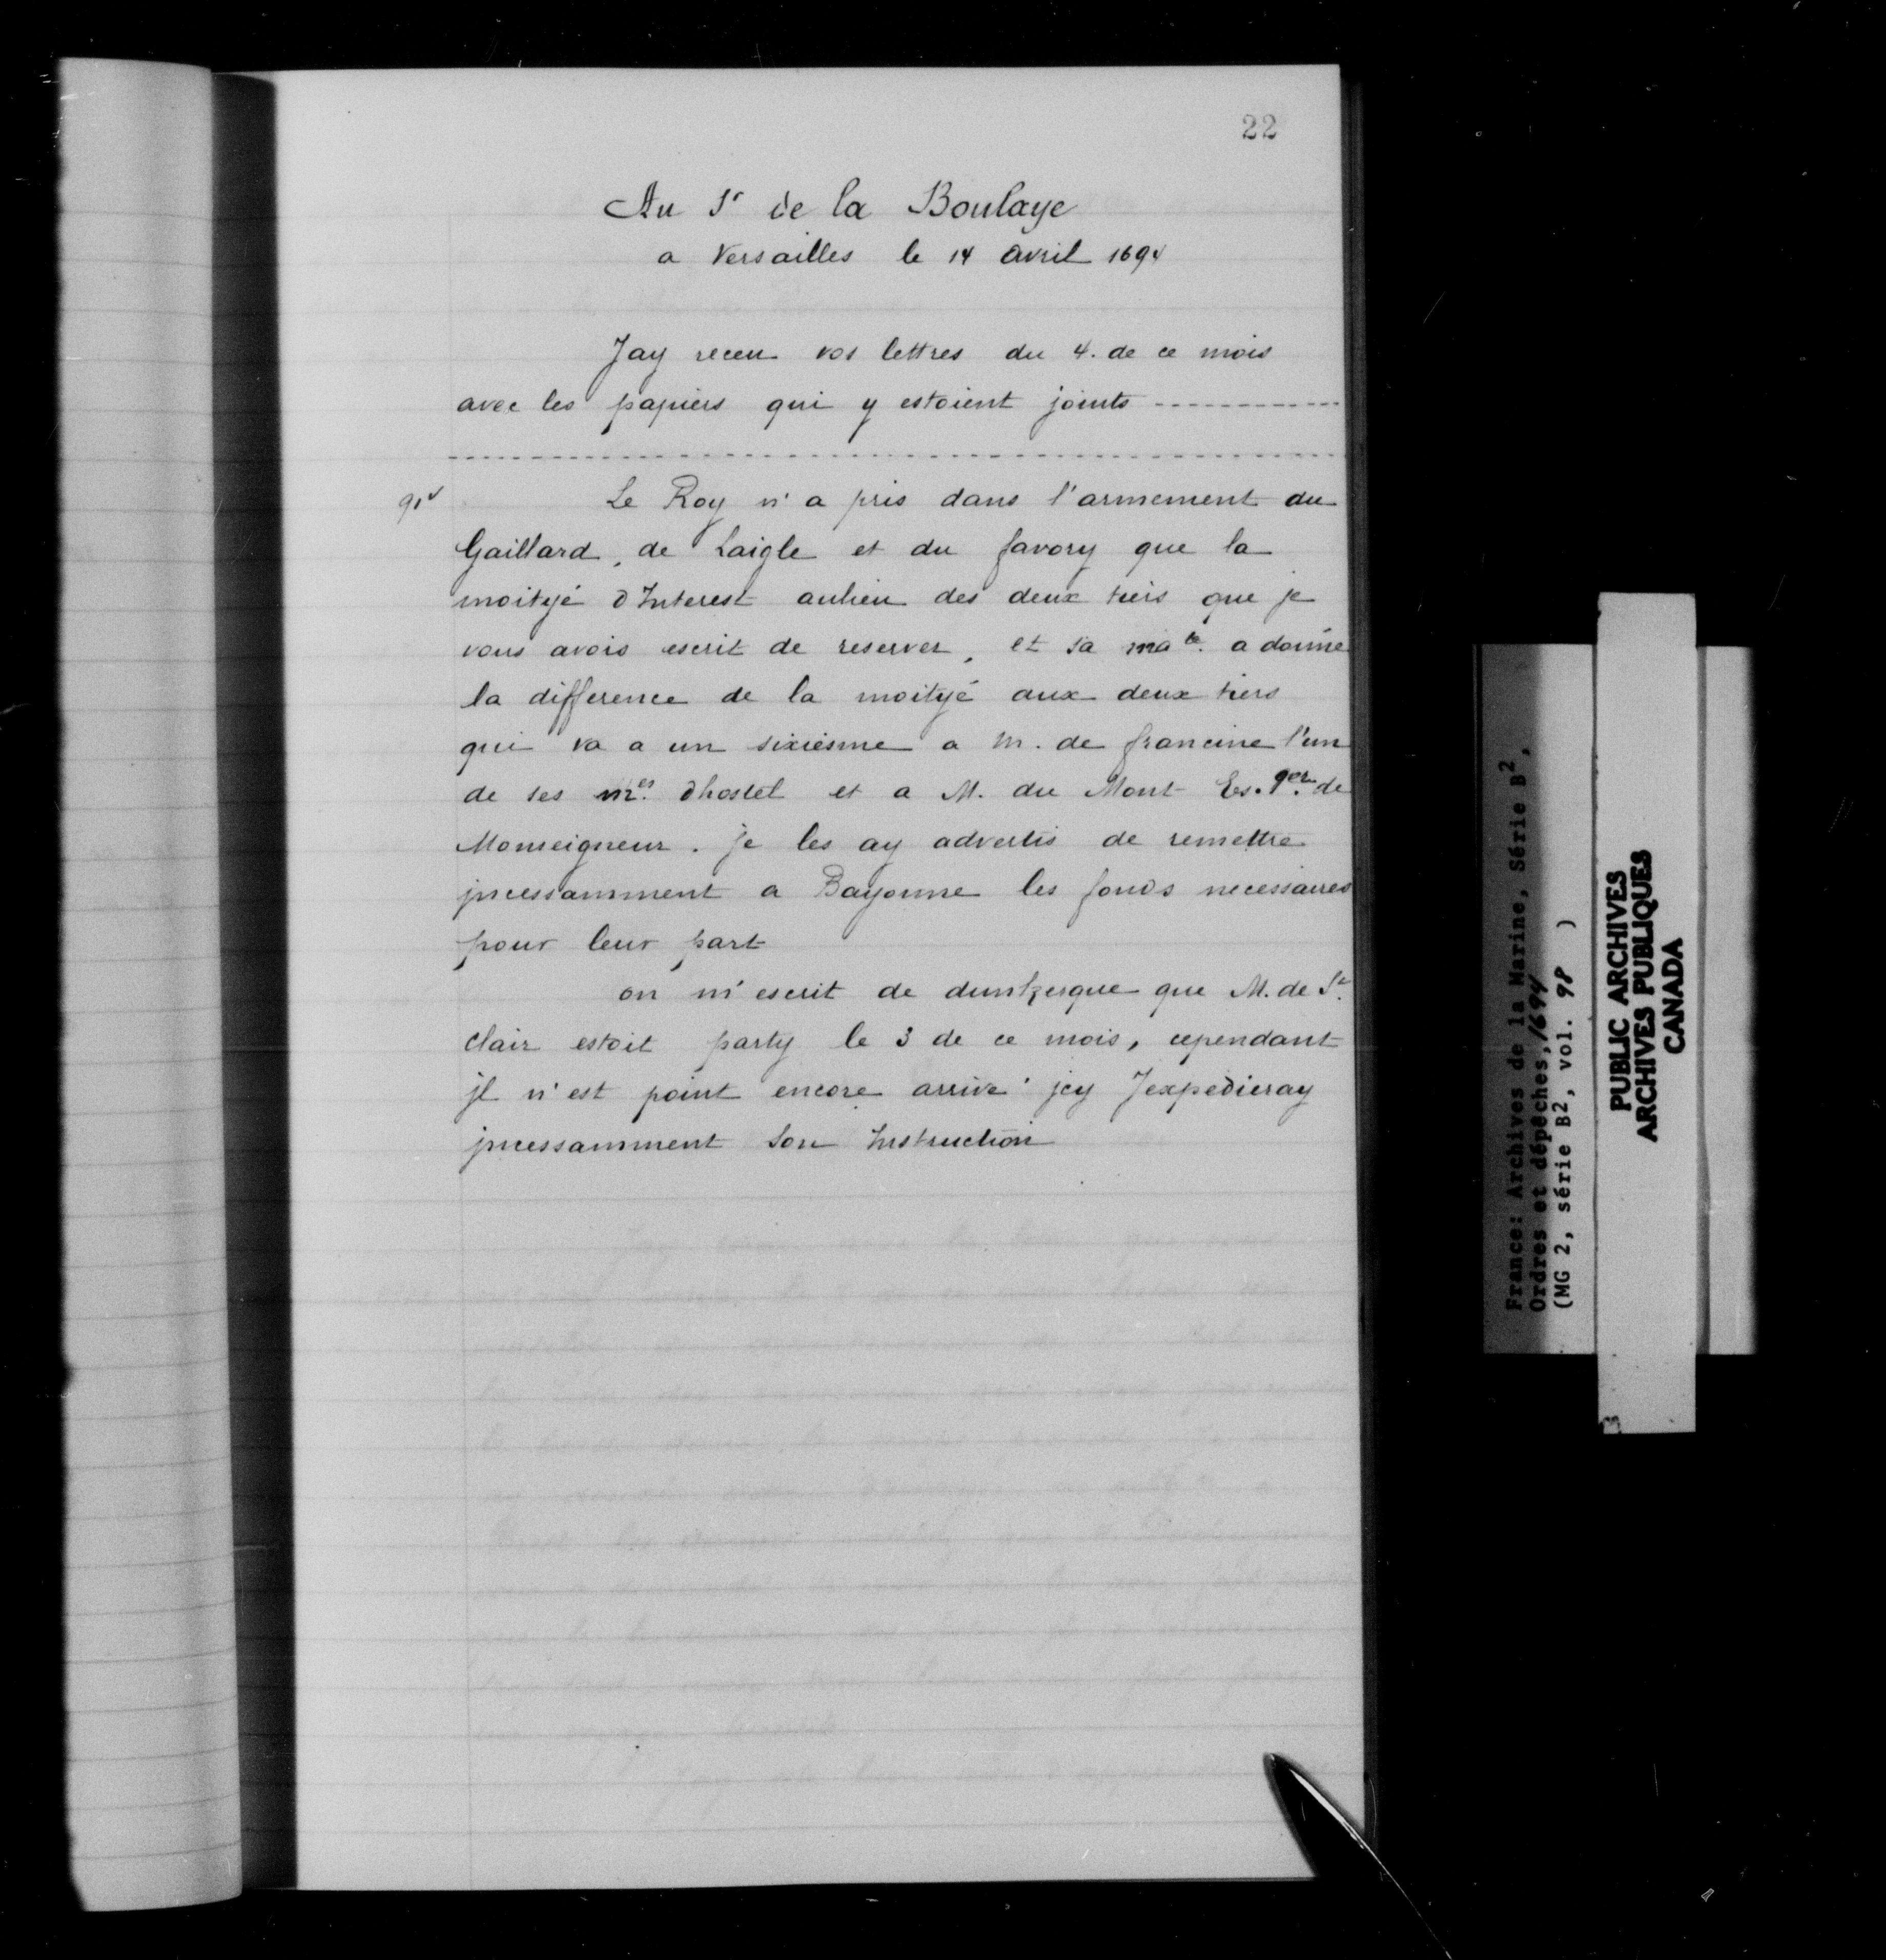 22
Au Sr de la Boulaye
a Versailles le 14 avril 1694
Jay receu vos lettres du 4. de ce mois
avec les papiers qui y estoient joints ------------
------------------------------
91v
Le Roy n'a pris dans l'armement du
Gaillard, de Laigle et du favory que la
moityé d'Interest aulieu des deux tiers que je
vous avois escrit de reserver, et sa mate. a donné
la difference de la moityé aux deux tiers
qui va a un sixiesme a M. de francine l'un
de ses mes. dhostel et a M. du Mont Es. de
Monseigneur. je les ay advertis de remettre
jncessamment a Bayonne les fonds necessaires
pour leur part
on m'escrit de dunkerque que M. de St.
clair estoit party le 3 de ce mois, cependant
jl n'est point encore arrivé jcy Jexpedieray
jncessamment son Instruction
France: Archives de la Marine, Série B2,
Ordres et dépêches, 1694
(MG 2, série B2, vol. 98 )
PUBLIC ARCHIVES
ARCHIVES PUBLIQUES
CANADA